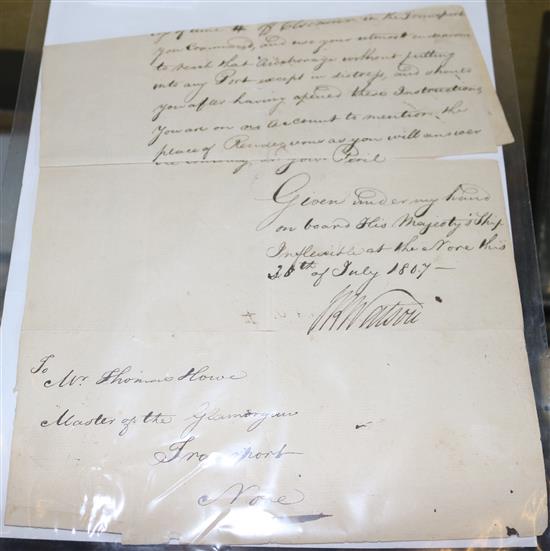 you Command, and use your utmost endeavour
to reach that Anchorage without putting
into any Port except in distress, and should
you after having opened these Instructions
You are on no account to mention the
place of Rendezvous as you will answer
the contrary at your Peril
Given under my hand
on board His Majesty's Ship
Inflexible at the Nore this
28th of July 1807 —
Watson
To
Mr. Thomas Howe
Master of the Glamorgan
Transport
Nore